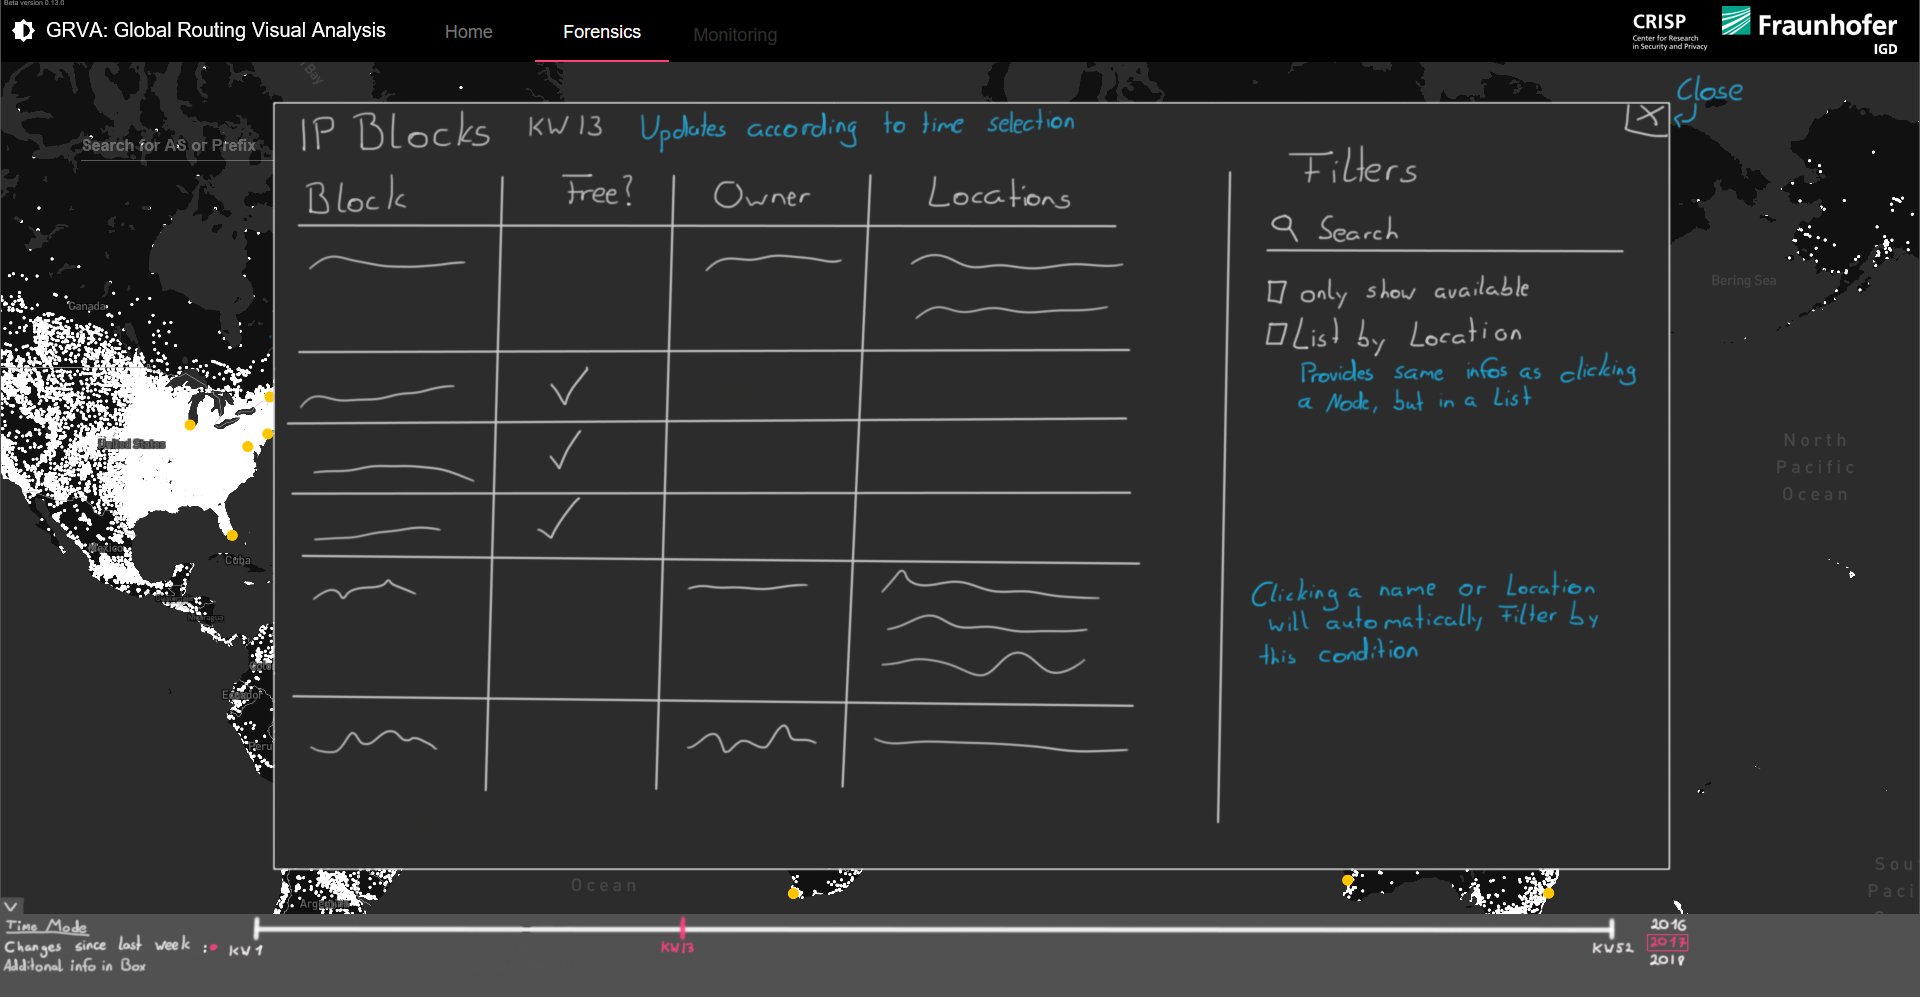 Beta version 0.13.0
GRVA: Global Routing Visual Analysis
Home
Forensics
Monitoring
CRISP
Center for Research
in Security and Privacy
Fraunhofer
IGD
Bay
Close
IP Blocks KW 13 Updates according to time selection
X
Search for AS or Prefix
Filters
Block Free? Owner Locations
Search
only show available
List by Location
Provides same infos as clicking
a Node, but in a List
Clicking a name or Location
will automatically Filter by
this condition
Canada
United States
Mexico
Cuba
Nicaragua
Ecuador
Peru
Bering Sea
North
Pacific
Ocean
Ocean
Sou
Paci
Time Mode
Changes since last week :
Additonal info in Box
KW 1
KW13
KW52
2016
2017
2018